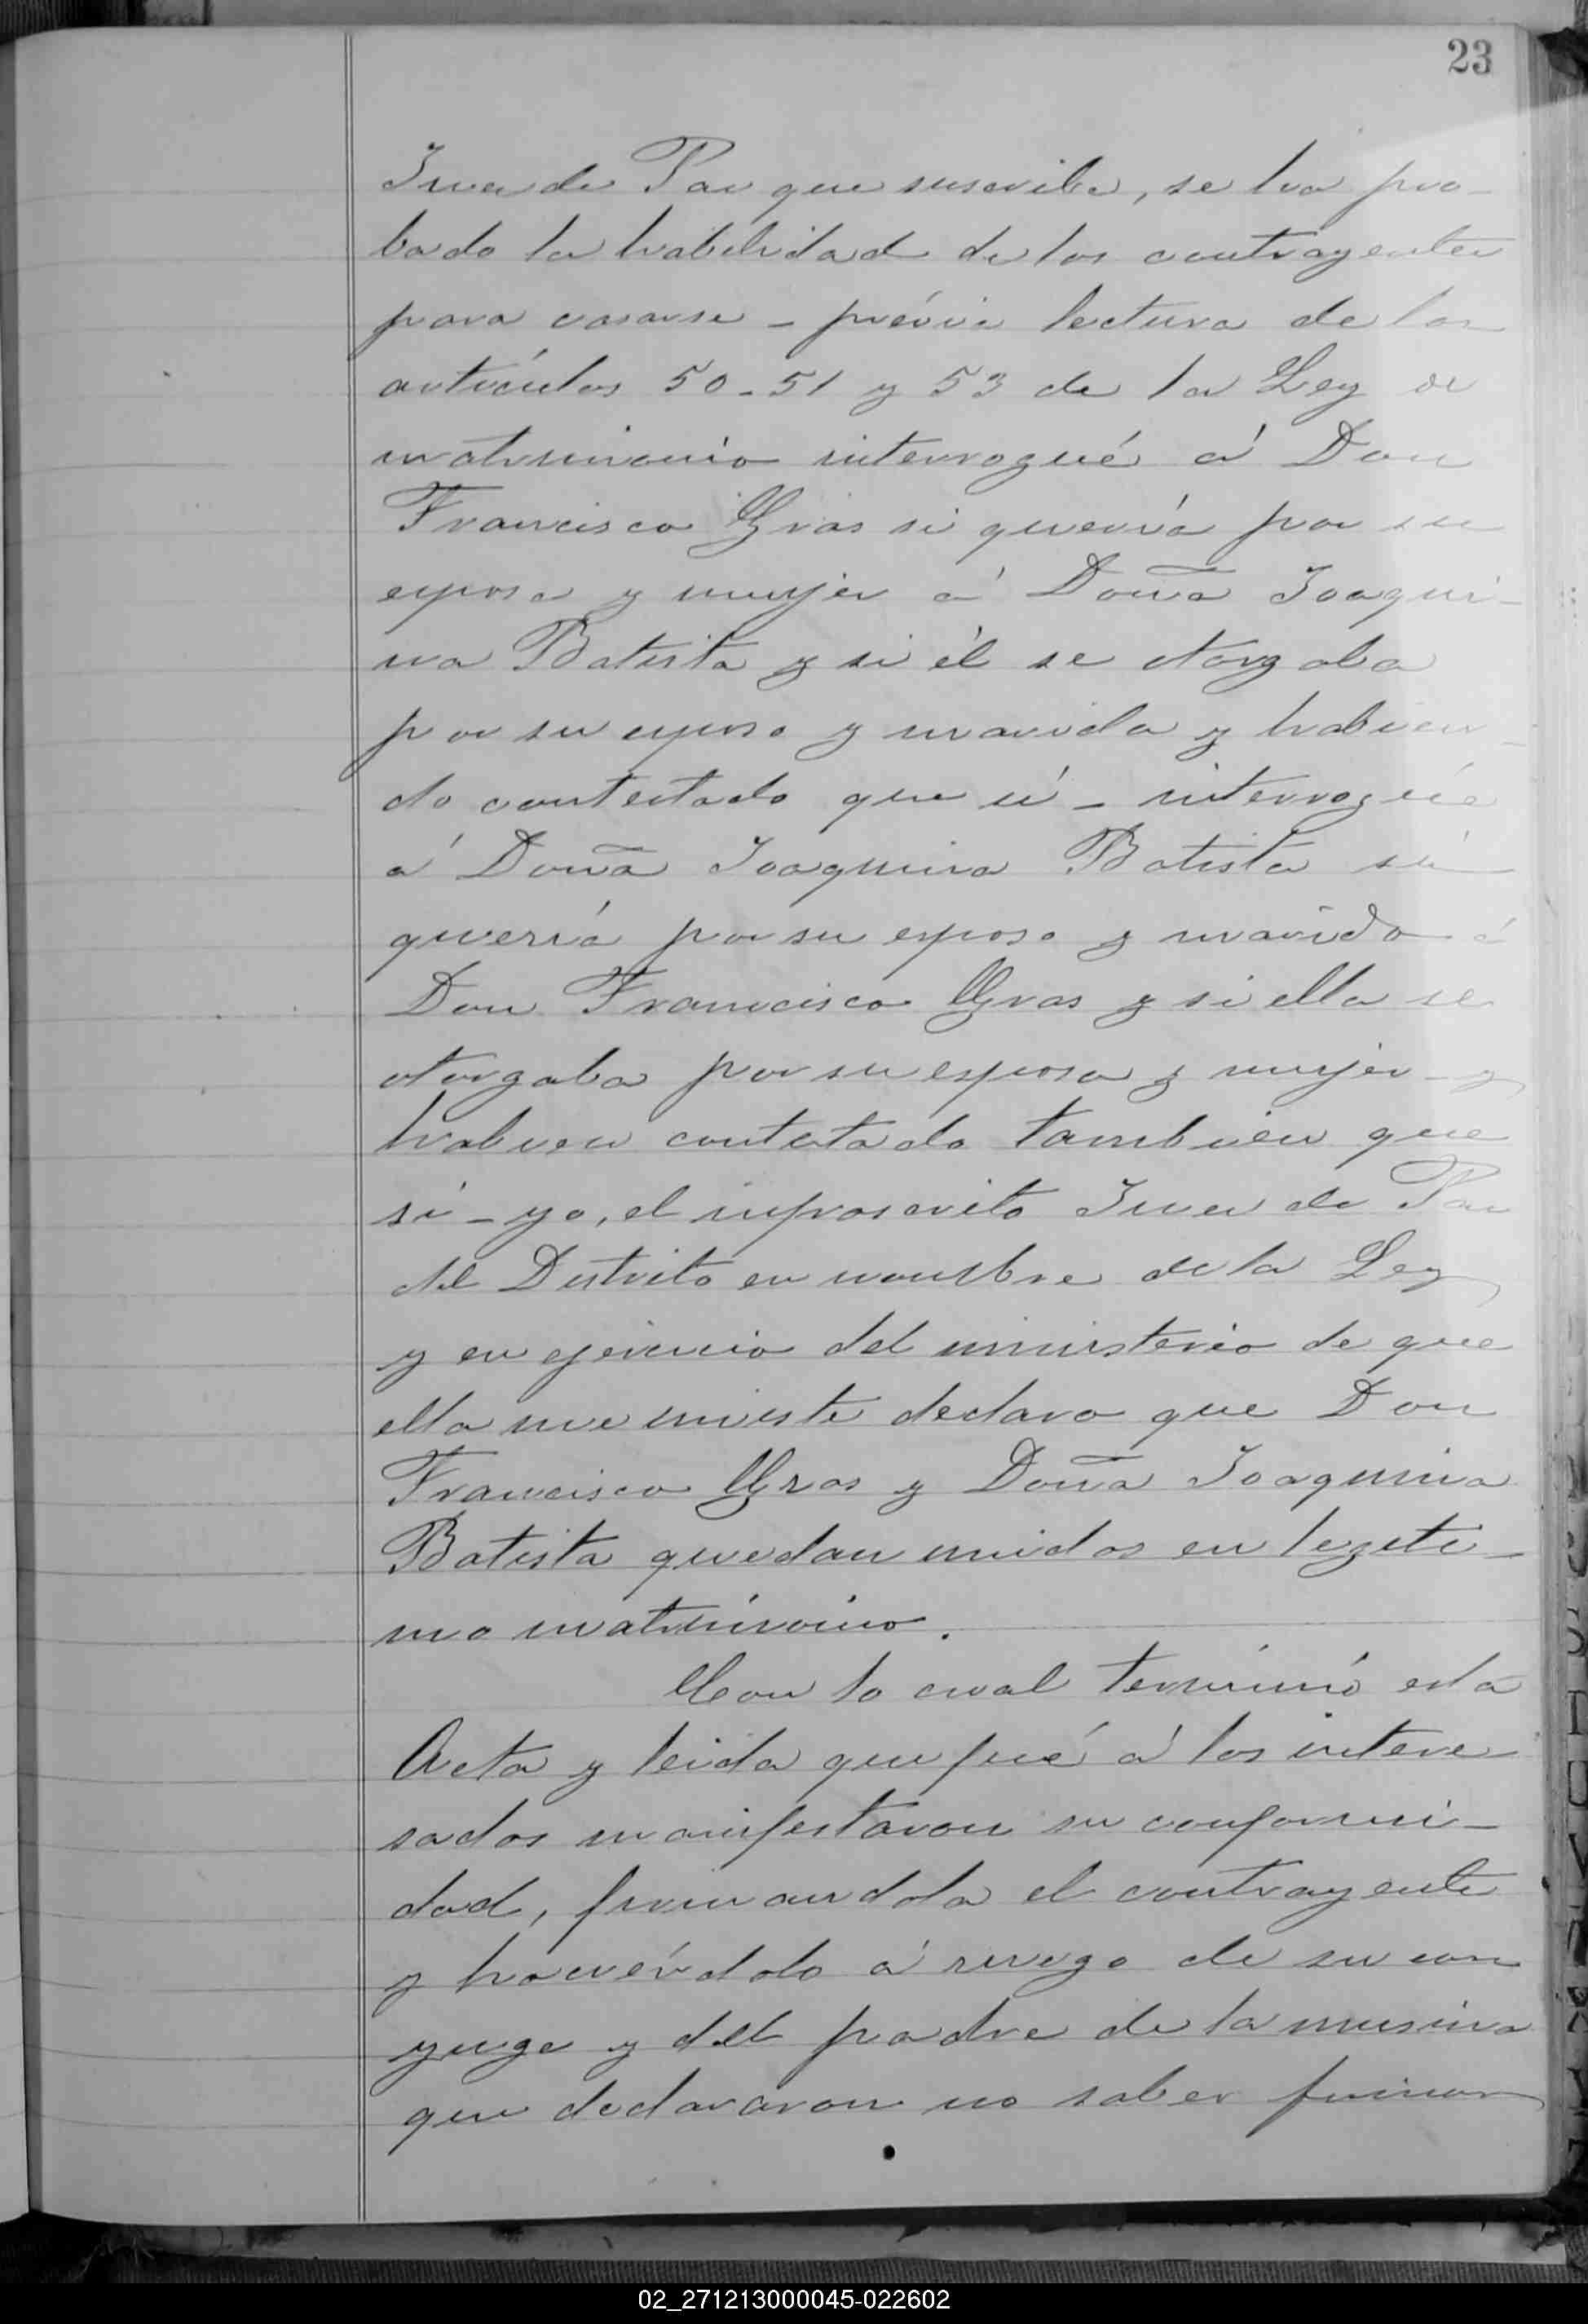 23
Juez de Paz que suscribe, se ha pro-
bado la habilidad de los contrayentes
para casarse - prévia lectura de los
artículos 50-51 y 53 de la Ley de
matrimonio interrogué á Don
Francisco Gras si quería por su
esposa y mujer á Doña Joaqui-
na Batista y si él se otorgaba
por su esposo y marido y habien-
do contestado que sí - interrogué
á Doña Joaquina Batista si
quería por su esposo y marido á
Don Francisco Gras y si ella se
otorgaba por su esposa y mujer - y
habien contestado tambien que
sí - yo, el infrascrito Juez de Paz
del Distrito en nombre de la Ley
y en ejercicio del ministerio de que
ella me inviste declaro que Don
Francisco Gras y Doña Joaquina
Batista quedan unidos en legíti-
mo matrimonio.
Con lo cual terminó esta
Acta y leida que fué á los intere
sados manifestaron su conformi-
dad, firmandola el contrayente
y haciéndolo á ruego de su con
yuge y del padre de la misma
que declararon no saber firmar
02_271213000045-022602